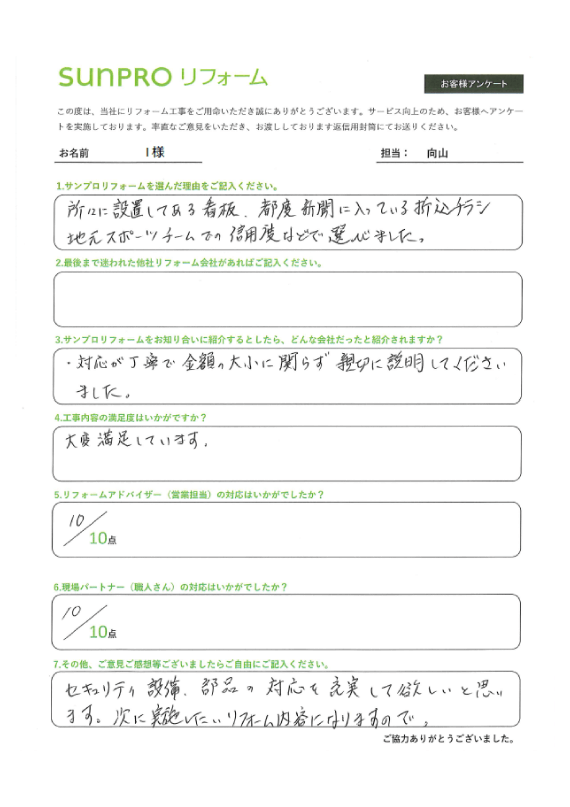 SUNPRO リフォーム
お客様アンケート
この度は、当社にリフォーム工事をご用命いただき誠にありがとうございます。サービス向上のため、お客様へアンケー
トを実施しております。率直なご意見をいただき、お渡ししております返信用封筒にてお送りください。
お名前 I 様 担当： 向山
1.サンプロリフォームを選んだ理由をご記入ください。
所々に設置してある看板、都度新聞に入っている折込チラシ
地元スポーツチームでの信用度などで選びました。
2.最後まで迷われた他社リフォーム会社があればご記入ください。
3.サンプロリフォームをお知り合いに紹介するとしたら、どんな会社だったと紹介されますか？
・対応が丁寧で金額の大小に関らず親切に説明してください
ました。
4.工事内容の満足度はいかがですか？
大変満足しています。
5.リフォームアドバイザー（営業担当）の対応はいかがでしたか？
10/10点
6.現場パートナー（職人さん）の対応はいかがでしたか？
10/10点
7.その他、ご意見ご感想等ございましたらご自由にご記入ください。
セキュリティ設備、部品の対応を充実して欲しいと思い
ます。次に実施したいリフォーム内容になりますので。
ご協力ありがとうございました。